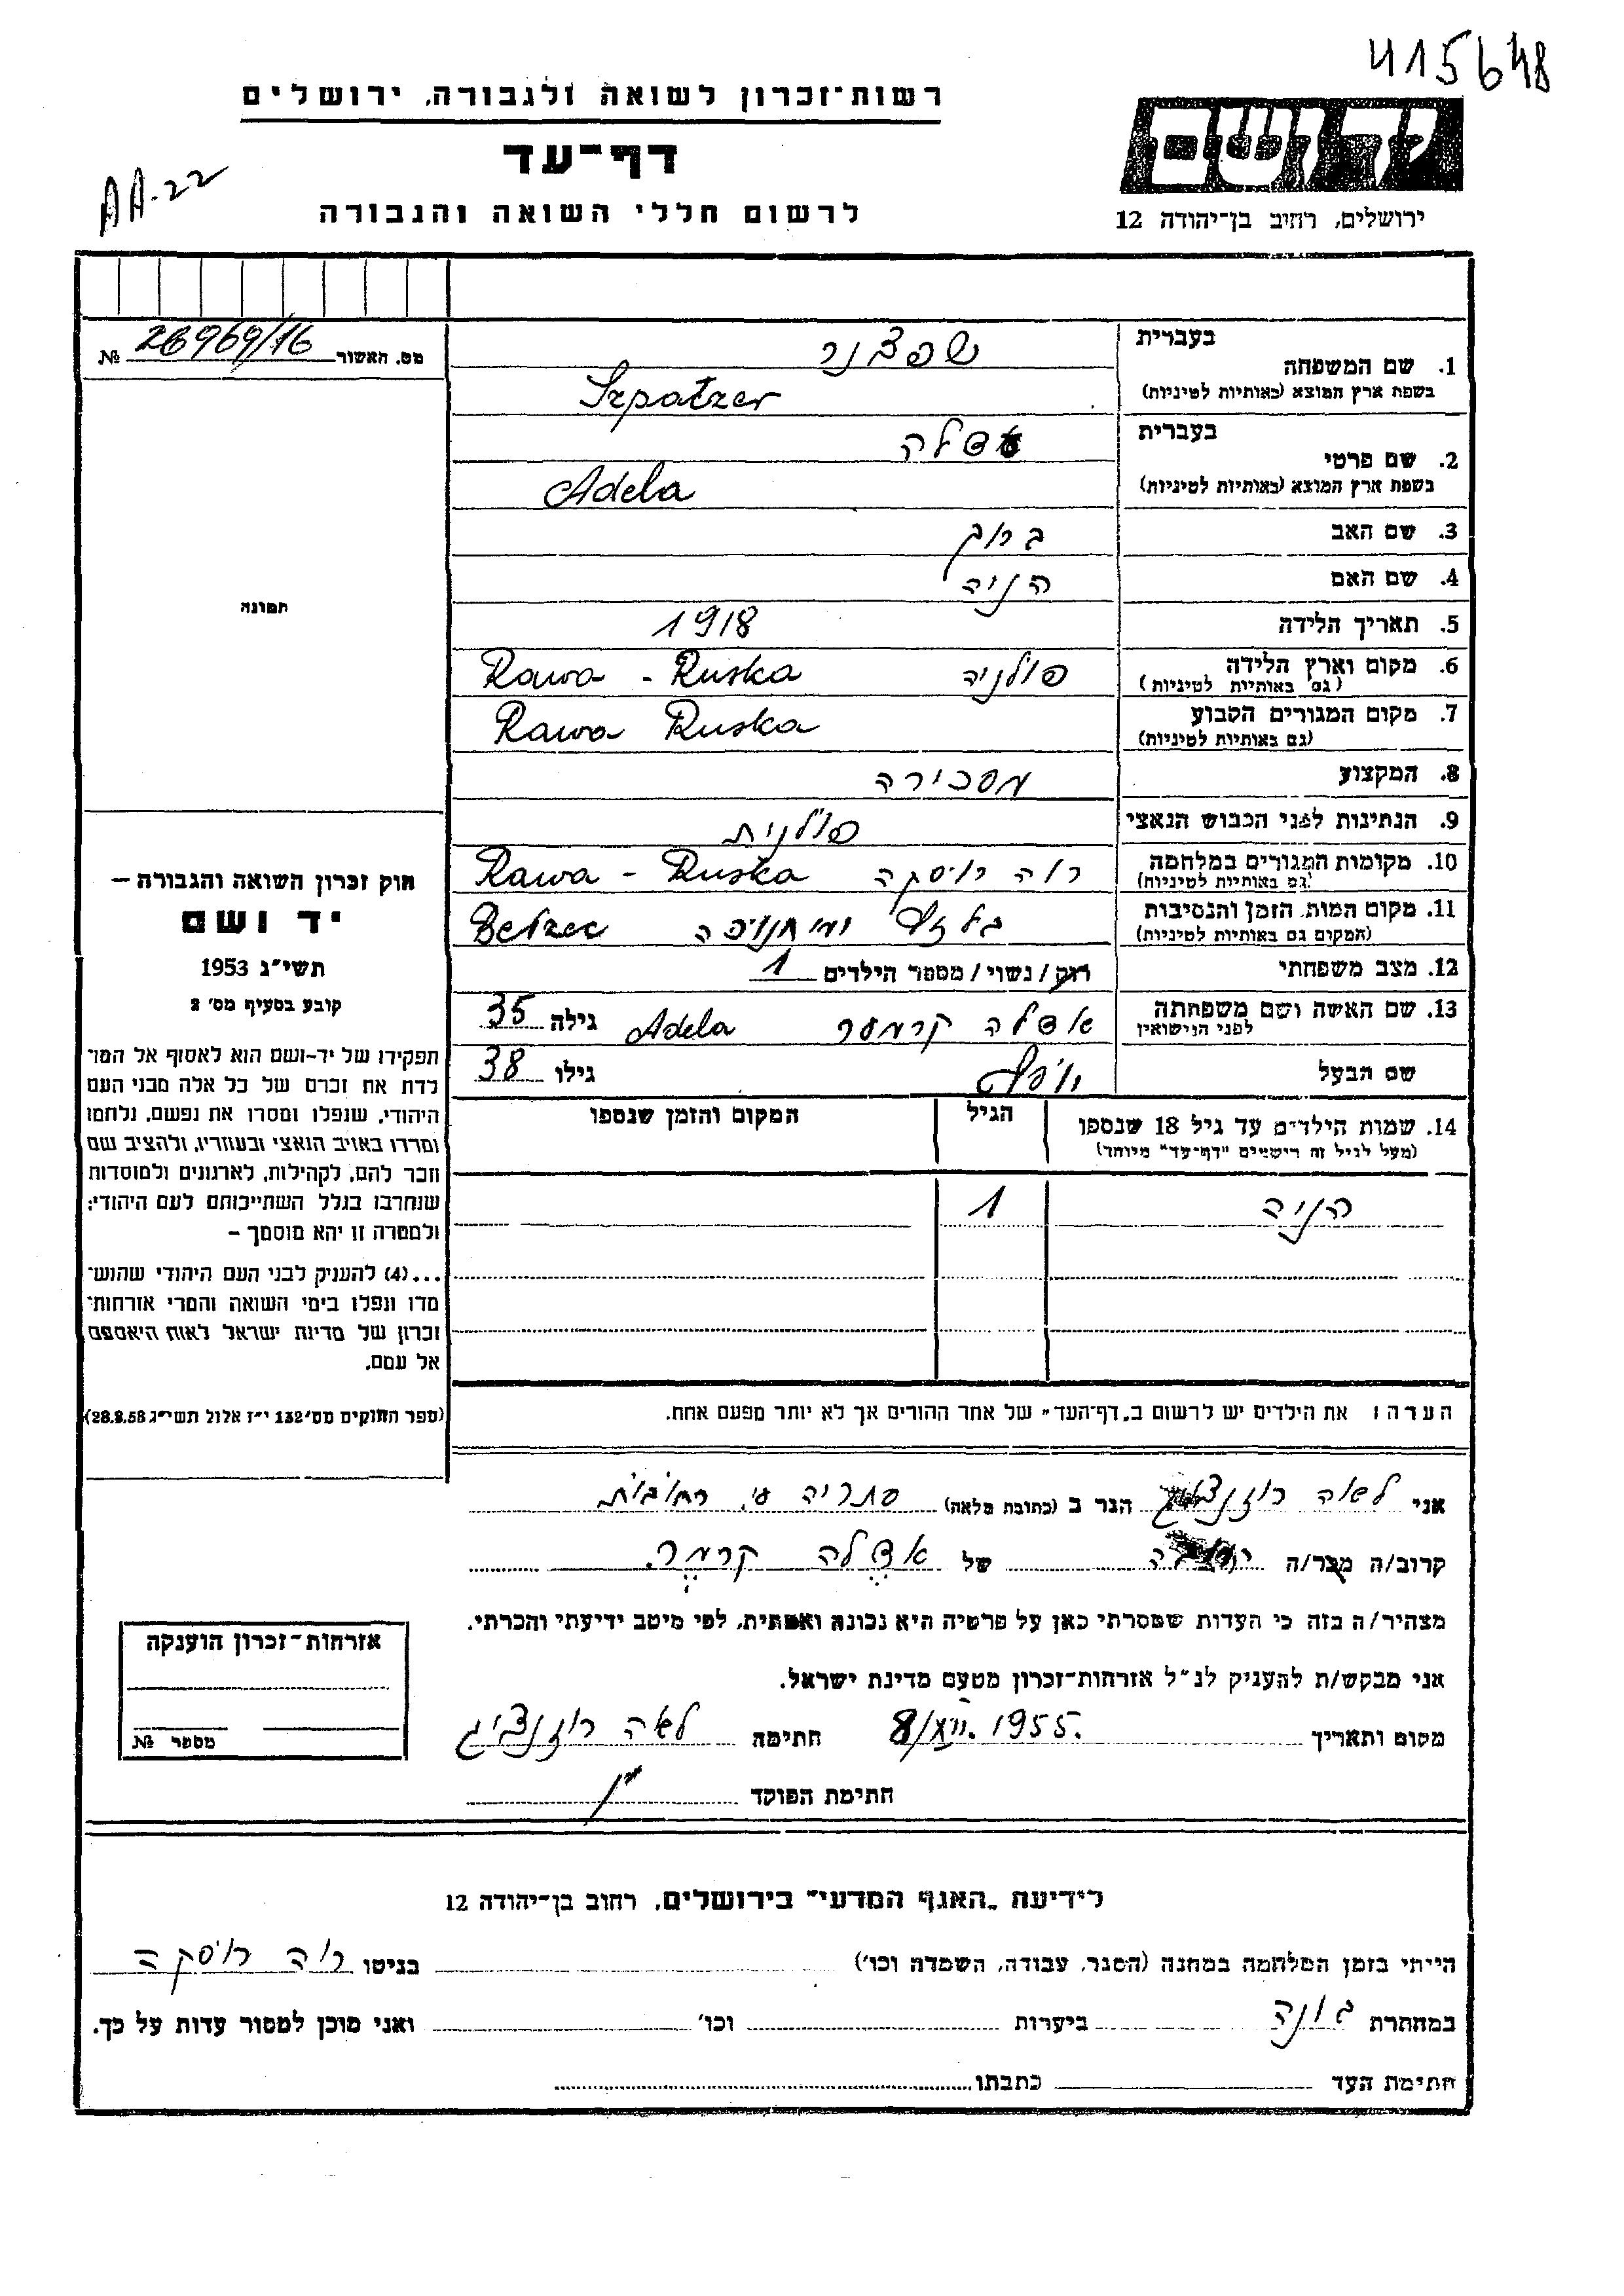 415648
רשות־זכרון לשואה ולגבורה, ירושלים
דף־עד
לרשום חללי השואה והגבורה
AA-22
יד ושם
ירושלים, רחוב בן־יהודה 12
מס. האשור 26969/16 №
תמונה
חוק זכרון השואה והגבורה –
יד ושם
תשי״ג 1953
קובע בסעיף מס׳ 2
תפקידו של יד-ושם הוא לאסוף אל המו־
לדת את זכרם של כל אלה מבני העם
היהודי, שנפלו ומסרו את נפשם, נלחמו
ומרדו באויב הנאצי ובעוזריו, ולהציב שם
וזכר להם, לקהילות, לארגונים ולמוסדות
שנחרבו בגלל השתייכותם לעם היהודי;
ולמטרה זו יהא מוסמך –
...(4) להעניק לבני העם היהודי שהוש־
מדו ונפלו בימי השואה והמרי אזרחות־
זכרון של מדינת ישראל לאות היאספם
אל עמם.
(ספר החוקים מס׳ 132 י״ז אלול תשי״ג 28.8.53)
בעברית שפצנר
1. שם המשפחה
בשפת ארץ המוצא (באותיות לטיניות) Szpatzer
בעברית אדלה
2. שם פרטי
בשפת ארץ המוצא (באותיות לטיניות) Adela
3. שם האב ברוך
4. שם האם הניה
5. תאריך הלידה 1918
6. מקום וארץ הלידה פולניה Rawa - Ruska
(גם באותיות לטיניות)
7. מקום המגורים הקבוע Rawa Ruska
(גם באותיות לטיניות)
8. המקצוע מזכירה
9. הנתינות לפני הכבוש הנאצי פולנית
10. מקומות המגורים במלחמה רוה רוסקה Rawa - Ruska
(גם באותיות לטיניות)
11. מקום המות, הזמן והנסיבות בלזץ Betzec
(המקום גם באותיות לטיניות)
12. מצב משפחתי רוק/נשוי/מספר הילדים 1
13. שם האשה ושם משפחתה אדלה קרמער Adela גילה 35
לפני הנישואין
שם הבעל יוסף גילו 38
14. שמות הילדים עד גיל 18 שנספו הגיל המקום והזמן שנספו
(מעל לגיל זה רושמים "דף־עד" מיוחד)
הניה 1
הערה: את הילדים יש לרשום ב„דף־העד" של אחד ההורים אך לא יותר מפעם אחת.
אני לאה רוזנצויג הגר ב (כתובת מלאה) סתריה ע״י רחובות
קרוב/ה מכר/ה של אדלה קרמר
מצהיר/ה בזה כי העדות שמסרתי כאן על פרטיה היא נכונה ואמתית, לפי מיטב ידיעתי והכרתי.
אני מבקש/ת להעניק לנ״ל אזרחות־זכרון מטעם מדינת ישראל.
מקום ותאריך 8/XII.1955. חתימה לאה רוזנצויג
חתימת הפוקד
אזרחות־זכרון הוענקה
מספר №
לידיעת „האגף המדעי" בירושלים, רחוב בן־יהודה 12
הייתי בזמן המלחמה במחנה (הסגר, עבודה, השמדה וכו׳) בגיטו רוה רוסקה
במחתרת ביערות וכו׳ ואני מוכן למסור עדות על כך.
חתימת העד כתבתו